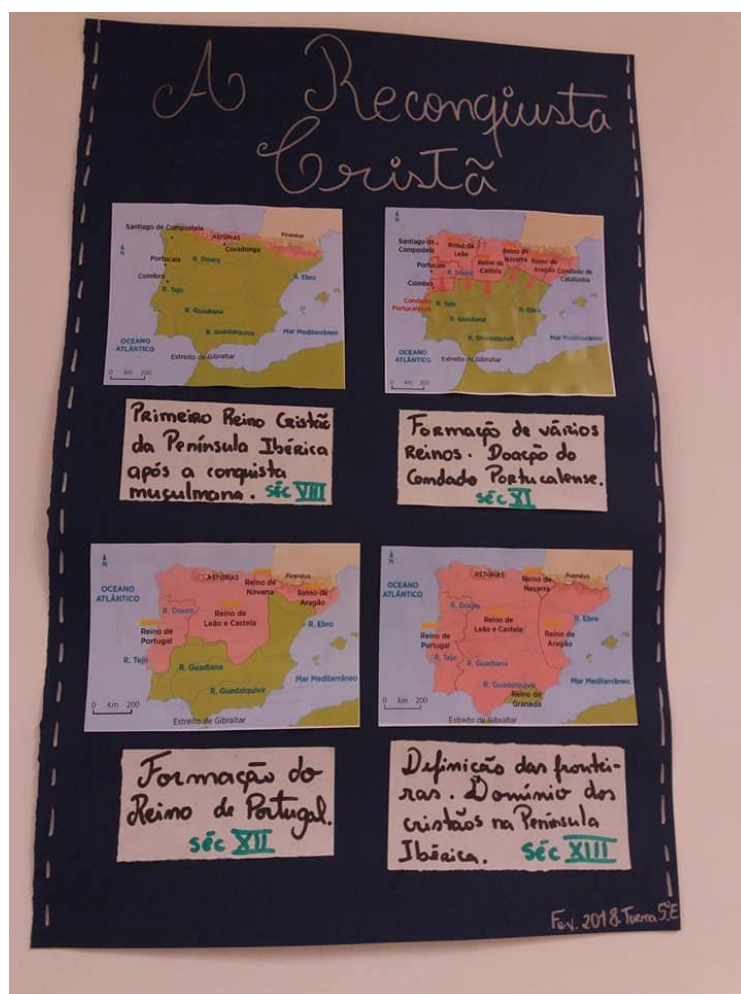 A Reconqiusta
Cristã
Santiago de Compostela
ASTÚRIAS
Pirenéus
Covadonga
Portucale
R. Douro
R. Ebro
Coimbra
R. Tejo
R. Guadiana
R. Guadalquivir
Mar Mediterrâneo
OCEANO
ATLÂNTICO
Estreito de Gibraltar
0 km 200
N
Santiago de
Compostela
Reino de
Leão
Reino de
Navarra
Pirenéus
Portucale
R. Douro
Reino de
Castela
Reino de
Aragão
Condado de
Catalunha
Coimbra
Condado
Portucalense
R. Tejo
R. Ebro
R. Guadiana
R. Guadalquivir
Mar Mediterrâneo
OCEANO
ATLÂNTICO
Estreito de Gibraltar
0 km 200
Primeiro Reino Cristão
da Península Ibérica
após a conquista
muçulmana. séc VIII
Formação de vários
Reinos. Doação do
Condado Portucalense.
séc XI
N
OCEANO
ATLÂNTICO
ASTÚRIAS
Reino de
Navarra
Pirenéus
Reino de
Aragão
R. Douro
Reino de
Leão e Castela
R. Ebro
Reino de
Portugal
R. Tejo
R. Guadiana
Mar Mediterrâneo
R. Guadalquivir
0 km 200
Estreito de Gibraltar
N
OCEANO
ATLÂNTICO
ASTÚRIAS
Reino de
Navarra
Pirenéus
R. Douro
Reino de
Leão e Castela
R. Ebro
Reino de
Portugal
Reino de
Aragão
R. Tejo
R. Guadiana
R. Guadalquivir
Mar Mediterrâneo
Reino de
Granada
0 km 200
Estreito de Gibraltar
Formação do
Reino de Portugal.
séc XII
Definição das frontei-
ras. Domínio dos
cristãos na Península
Ibérica. séc XIII
Fev. 2018. Turma 5ºE